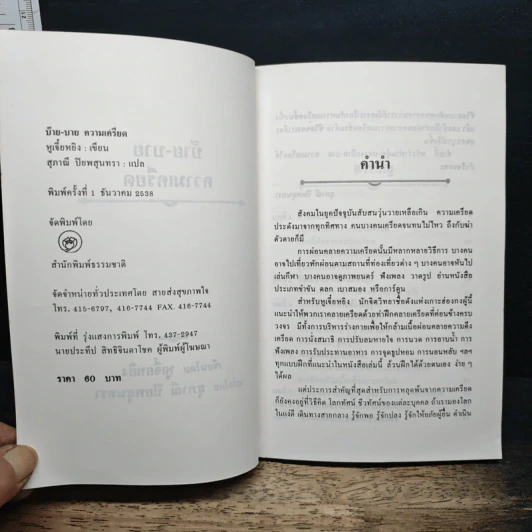 บ๊าย-บาย ความเครียด
หูเจี้ยหยิง : เขียน
สุภาณี ปิยพสุนทรา : แปล
พิมพ์ครั้งที่ 1 ธันวาคม 2538
จัดพิมพ์โดย
สำนักพิมพ์ธรรมชาติ
จัดจำหน่ายทั่วประเทศโดย สายส่งสุขภาพใจ
โทร. 415-6797, 416-7744 FAX. 416-7744
พิมพ์ที่ รุ่งแสงการพิมพ์ โทร. 437-2947
นายประทีป สิทธิจินดาโชค ผู้พิมพ์ผู้โฆษณา
ราคา 60 บาท
คำนำ
สังคมในยุคปัจจุบันสับสนวุ่นวายเหลือเกิน ความเครียด
ประดังมาจากทุกทิศทาง คนบางคนเครียดจนทนไม่ไหว ถึงกับฆ่า
ตัวตายก็มี
การผ่อนคลายความเครียดนั้นมีหลากหลายวิธีการ บางคน
อาจไปเที่ยวพักผ่อนตามสถานที่ท่องเที่ยวต่าง ๆ บางคนอาจหันไป
เล่นกีฬา บางคนอาจดูภาพยนตร์ ฟังเพลง วาดรูป อ่านหนังสือ
ประเภทขำขัน ตลก เบาสมอง หรือการ์ตูน
สำหรับหูเจี้ยหยิง นักจิตวิทยาชื่อดังแห่งเกาะฮ่องกงผู้นี้
แนะนำให้พวกเราคลายเครียดด้วยท่าฝึกคลายเครียดที่ค่อนข้างครบ
วงจร มีทั้งการบริหารร่างกายเพื่อให้กล้ามเนื้อผ่อนคลายความตึง
เครียด การนั่งสมาธิ การปรับลมหายใจ การนวด การอาบน้ำ การ
ฟังเพลง การรับประทานอาหาร การจุดธูปหอม การนอนหลับ ฯลฯ
ทุกแบบฝึกที่แนะนำในหนังสือเล่มนี้ ล้วนฝึกได้ด้วยตนเอง ง่าย ๆ
ได้ผล
แต่ประการสำคัญที่สุดสำหรับการหลุดพ้นจากความเครียด
ก็ยังคงอยู่ที่วิธีคิด โลกทัศน์ ชีวทัศน์ของแต่ละบุคคล ถ้าเรามองโลก
ในแง่ดี เดินทางสายกลาง รู้จักพอ รู้จักปลง รู้จักให้อภัยผู้อื่น ดำเนิน